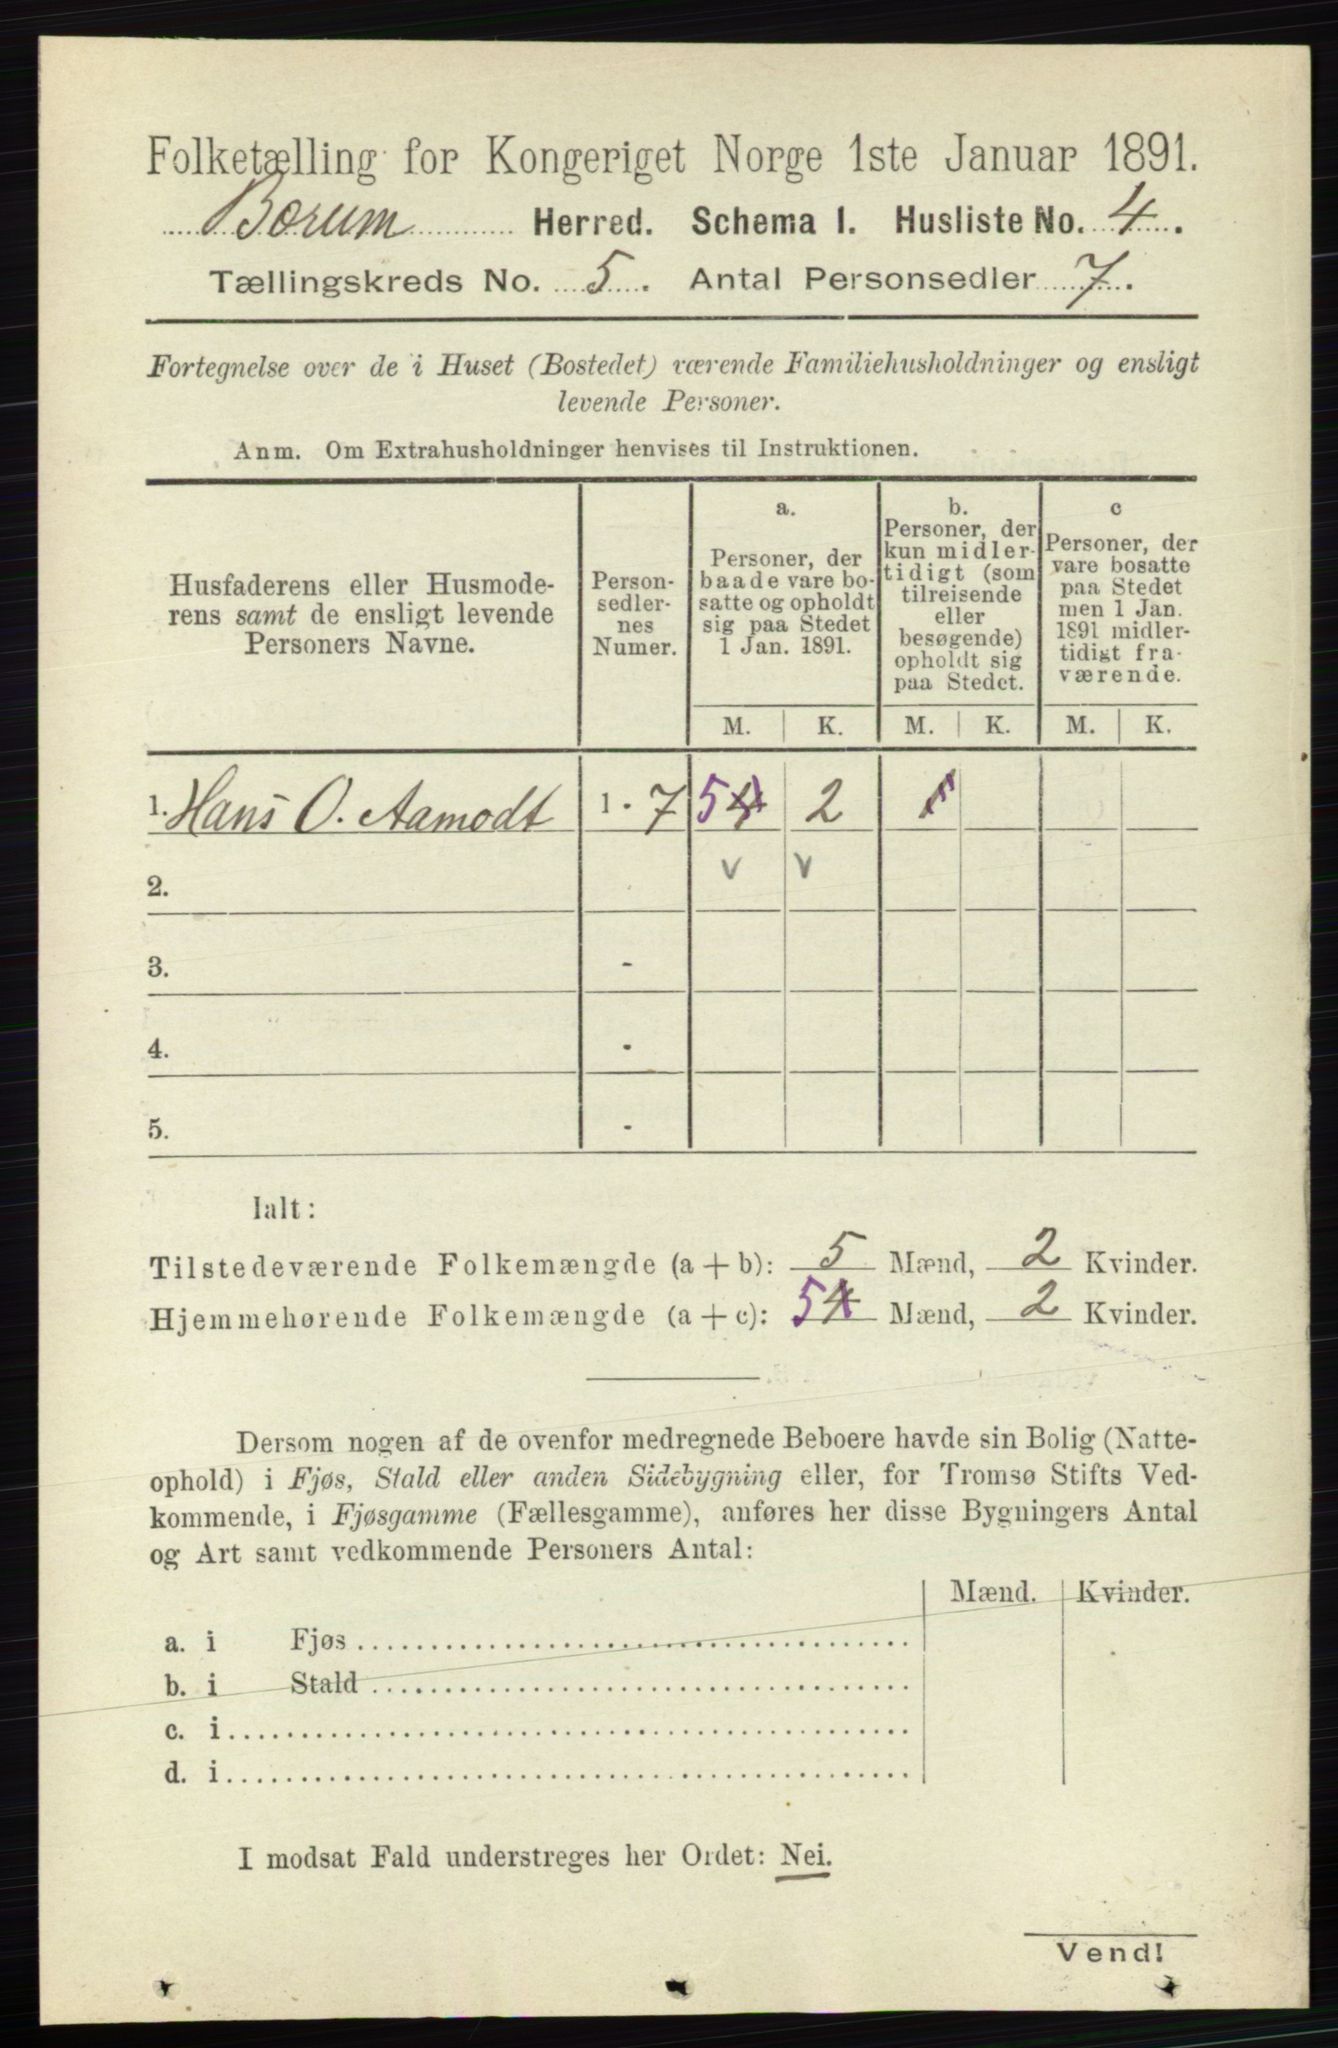 Folketælling for Kongeriget Norge 1ste Januar 1891.
Bærum Herred. Schema I. Husliste No. 4.
Tællingskreds No. 5. Antal Personsedler 7.
Fortegnelse over de i Huset (Bostedet) værende Familiehusholdninger og ensligt
levende Personer.
Anm. Om Extrahusholdninger henvises til Instruktionen.
Husfaderens eller Husmode-
rens samt de ensligt levende
Personers Navne.
Person-
sedler-
nes
Numer.
a.
Personer, der
baade vare bo-
satte og opholdt
sig paa Stedet
1 Jan. 1891.
b.
Personer, der
kun midler-
tidigt (som
tilreisende
eller
besøgende)
opholdt sig
paa Stedet.
c
Personer, der
vare bosatte
paa Stedet
men 1 Jan.
1891 midler-
tidigt fra-
værende.
M. K. M. K. M. K.
1. Hans O. Aamodt 1 - 7 5 4 2 1
v v
2.
3. -
4. -
5. -
Ialt:
Tilstedeværende Folkemængde (a + b): 5 Mænd, 2 Kvinder.
Hjemmehørende Folkemængde (a + c): 5 4 Mænd, 2 Kvinder.
Dersom nogen af de ovenfor medregnede Beboere havde sin Bolig (Natte-
ophold) i Fjøs, Stald eller anden Sidebygning eller, for Tromsø Stifts Ved-
kommende, i Fjøsgamme (Fællesgamme), anføres her disse Bygningers Antal
og Art samt vedkommende Personers Antal:
Mænd. Kvinder.
a. i Fjøs
b. i Stald
c. i
d. i
I modsat Fald understreges her Ordet: Nei.
Vend!